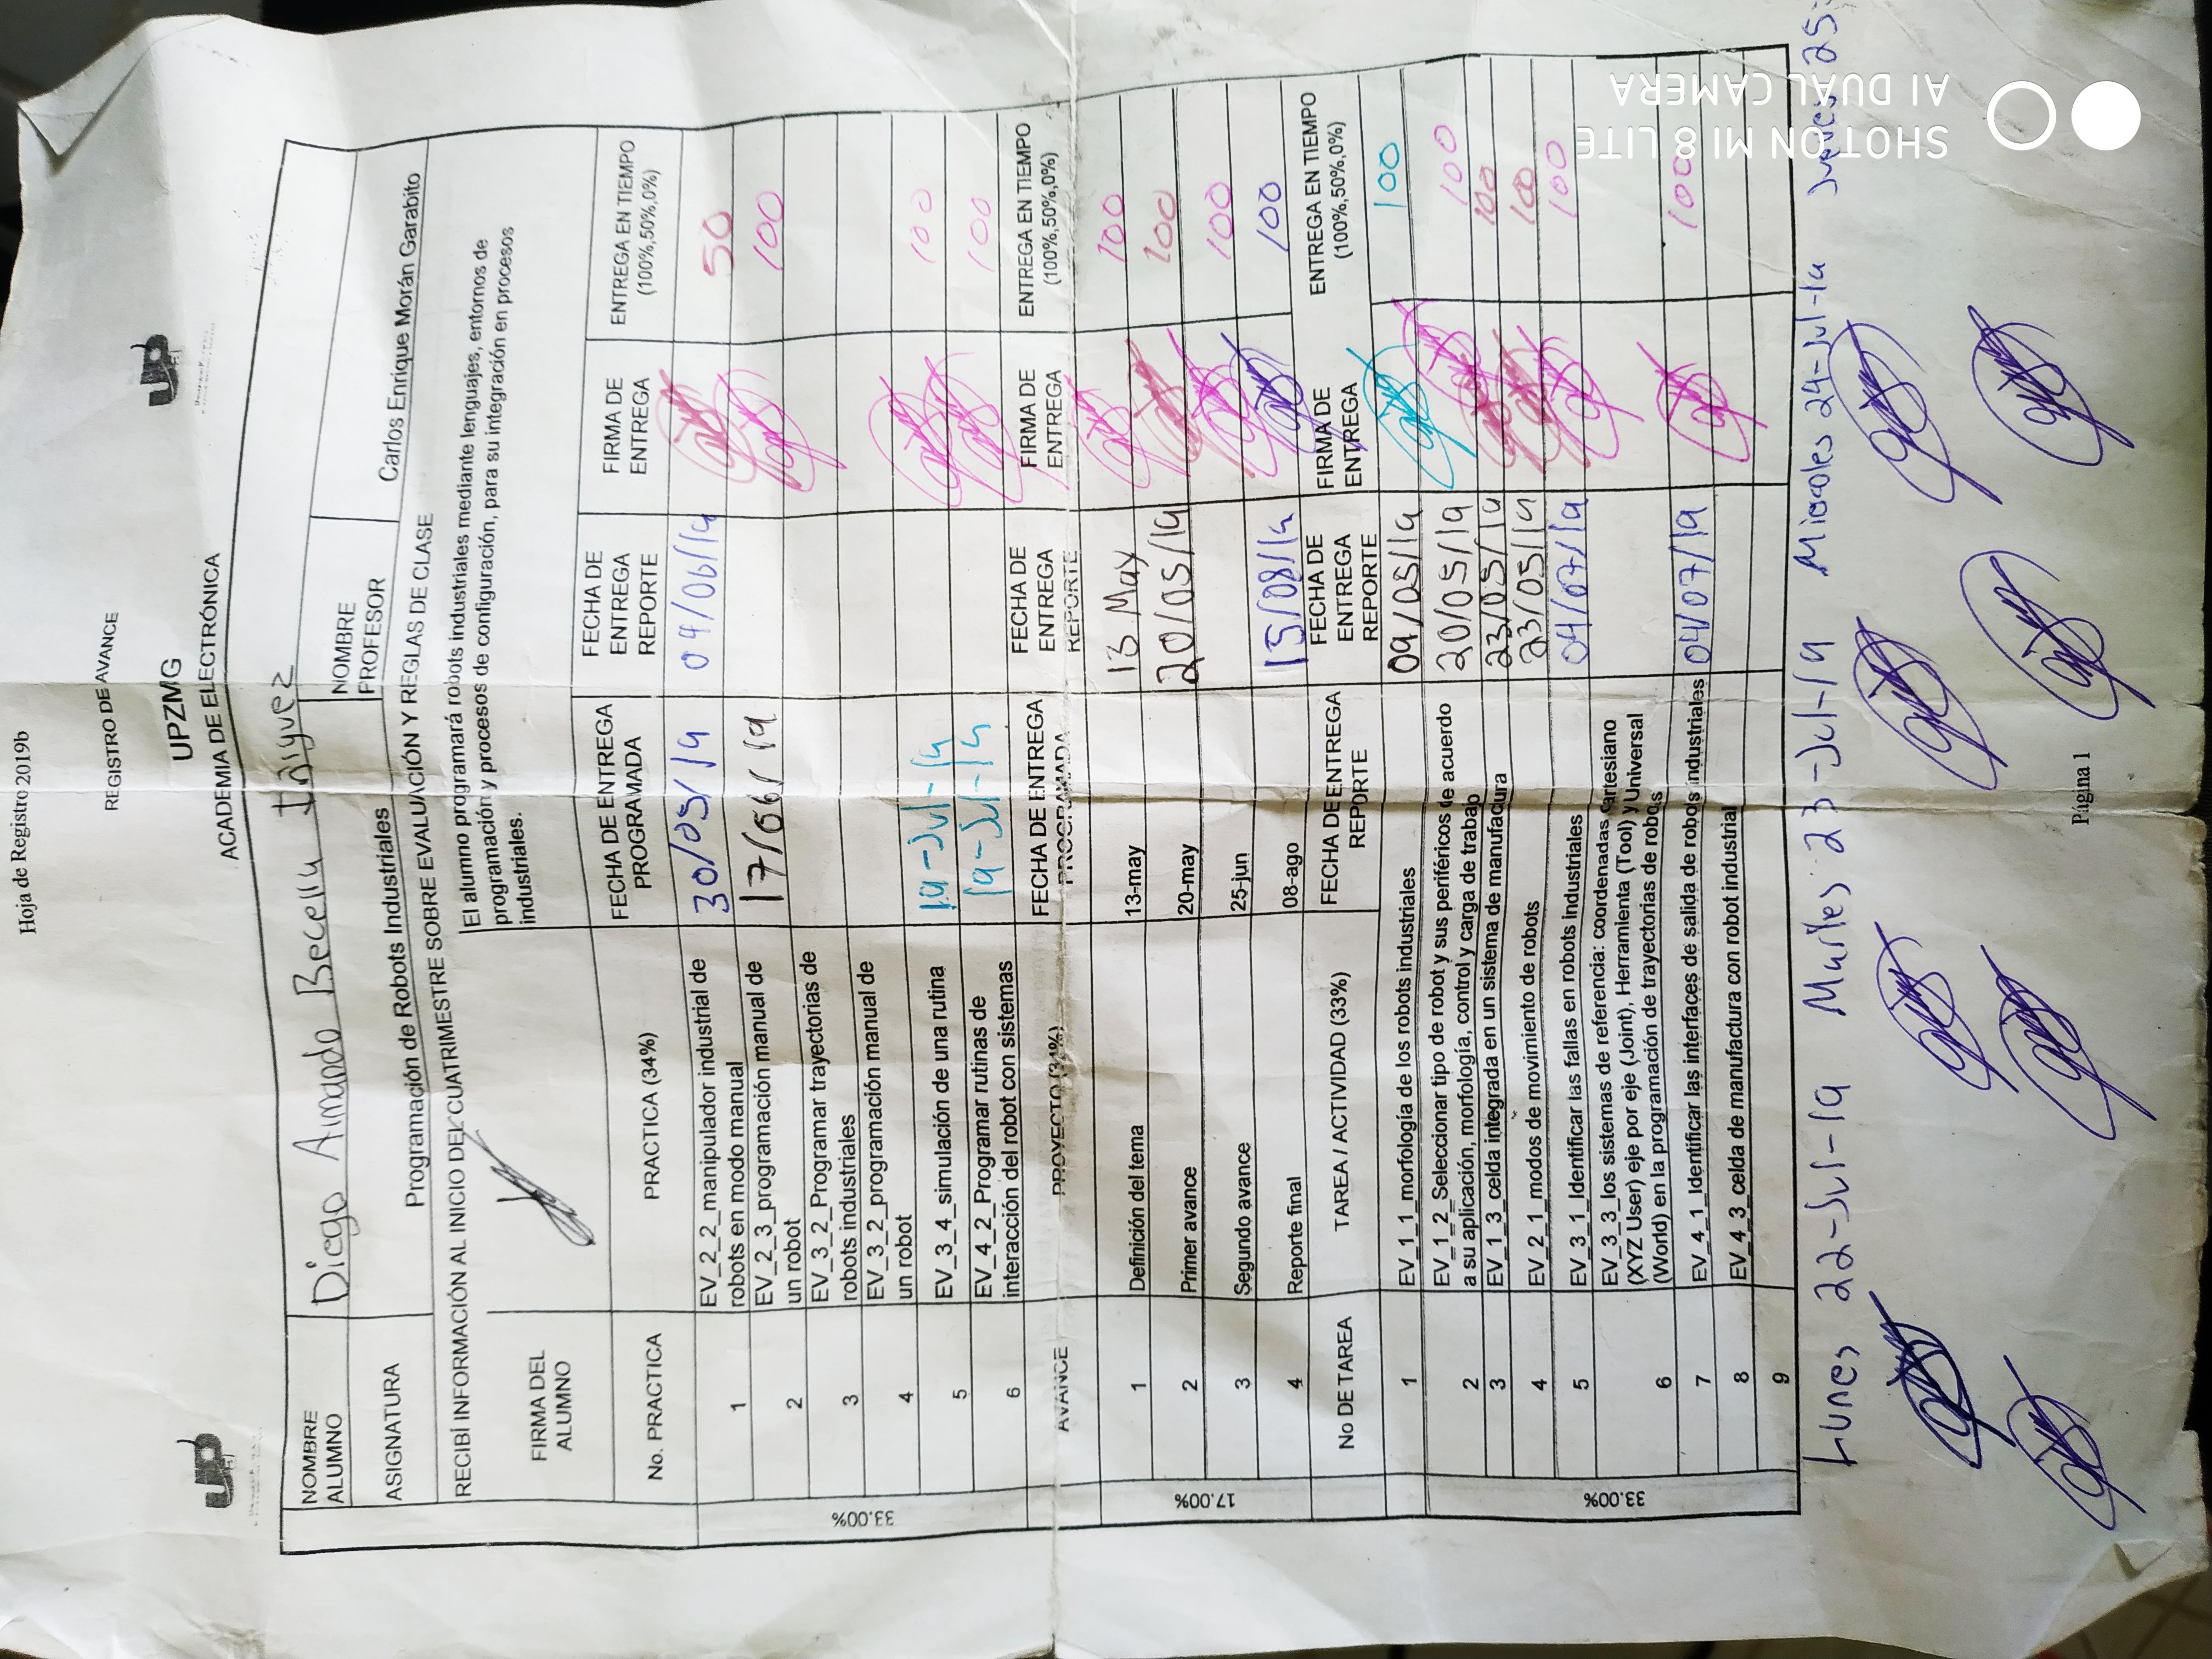 Hoja de Registro 2019b
REGISTRO DE AVANCE
UPZMG
ACADEMIA DE ELECTRÓNICA
UP
UP
NOMBRE ALUMNO Diego Armando Becerra Iñiguez
ASIGNATURA Programación de Robots Industriales NOMBRE PROFESOR Carlos Enrique Morán Garabito
RECIBÍ INFORMACIÓN AL INICIO DEL CUATRIMESTRE SOBRE EVALUACIÓN Y REGLAS DE CLASE
FIRMA DEL ALUMNO
El alumno programará robots industriales mediante lenguajes, entornos de
programación y procesos de configuración, para su integración en procesos
industriales.
No. PRACTICA PRACTICA (34%) FECHA DE ENTREGA PROGRAMADA FECHA DE ENTREGA REPORTE FIRMA DE ENTREGA ENTREGA EN TIEMPO (100%,50%,0%)
33.00%
1 EV_2_2_manipulador industrial de robots en modo manual 30/05/19 04/06/19 50
2 EV_2_3_programación manual de un robot 17/06/19 100
3 EV_3_2_Programar trayectorias de robots industriales
4 EV_3_2_programación manual de un robot
5 EV_3_4_simulación de una rutina 19-Jul-19 100
6 EV_4_2_Programar rutinas de interacción del robot con sistemas 19-Jul-19 100
AVANCE PROYECTO (34%) FECHA DE ENTREGA PROGRAMADA FECHA DE ENTREGA REPORTE FIRMA DE ENTREGA ENTREGA EN TIEMPO (100%,50%,0%)
17.00%
1 Definición del tema 13-may 13 May 100
2 Primer avance 20-may 20/05/19 100
3 Segundo avance 25-jun 100
4 Reporte final 08-ago 15/08/19 100
No DE TAREA TAREA / ACTIVIDAD (33%) FECHA DE ENTREGA REPORTE FECHA DE ENTREGA REPORTE FIRMA DE ENTREGA ENTREGA EN TIEMPO (100%,50%,0%)
33.00%
1 EV_1_1_morfología de los robots industriales 09/05/19 100
2 EV_1_2_Seleccionar tipo de robot y sus periféricos de acuerdo a su aplicación, morfología, control y carga de trabajo 20/05/19 100
3 EV_1_3_celda integrada en un sistema de manufactura 23/05/19 100
4 EV_2_1_modos de movimiento de robots 23/05/19 100
5 EV_3_1_Identificar las fallas en robots industriales 04/07/19 100
6 EV_3_3_los sistemas de referencia: coordenadas cartesiano (XYZ User) eje por eje (Joint), Herramienta (Tool) y Universal (World) en la programación de trayectorias de robots
7 EV_4_1_Identificar las interfaces de salida de robots industriales 04/07/19 100
8 EV_4_3_celda de manufactura con robot industrial
9
Lunes 22-Jul-19 Martes 23-Jul-19 Miercoles 24-Jul-19 Jueves 25
Página 1
SHOT ON MI 8 LITE
AI DUAL CAMERA